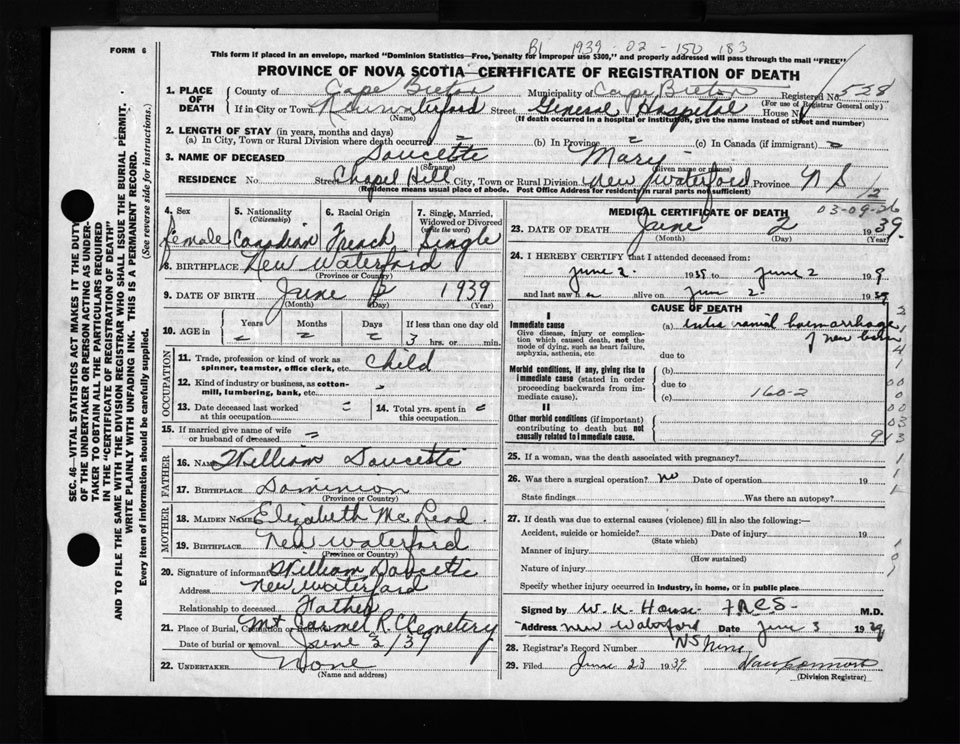 FORM 6
B1 1939-02-150 183
This form if placed in an envelope, marked "Dominion Statistics—Free, penalty for improper use $300," and properly addressed will pass through the mail "FREE"
PROVINCE OF NOVA SCOTIA—CERTIFICATE OF REGISTRATION OF DEATH
1. PLACE OF DEATH County of Cape Breton Municipality of Cape Breton Registered No. 528
(For use of Registrar General only)
If in City or Town New Waterford Street General Hospital House No
(Name) (If death occurred in a hospital or institution, give the name instead of street and number)
2. LENGTH OF STAY (in years, months and days)
(a) In City, Town or Rural Division where death occurred = (b) In Province = (c) In Canada (if immigrant) =
3. NAME OF DECEASED Doucette Mary
(Surname) (Given name or names)
RESIDENCE No. Street Chapel Hill City, Town or Rural Division New Waterford Province N S
(Residence means usual place of abode. Post Office Address for residents in rural parts not sufficient)
12
03-09-36
4. Sex 5. Nationality 6. Racial Origin 7. Single, Married, Widowed or Divorced
(Citizenship) (write the word)
female Canadian French Single
8. BIRTHPLACE New Waterford
(Province or Country)
9. DATE OF BIRTH June 2 1939
(Month) (Day) (Year)
10. AGE in Years Months Days If less than one day old
= = = 3 hrs. or min.
OCCUPATION
11. Trade, profession or kind of work as spinner, teamster, office clerk, etc. Child
12. Kind of industry or business, as cotton-mill, lumbering, bank, etc. =
13. Date deceased last worked at this occupation = 14. Total yrs. spent in this occupation =
15. If married give name of wife or husband of deceased =
FATHER
16. NAME William Doucette
17. BIRTHPLACE Dominion
(Province or Country)
MOTHER
18. MAIDEN NAME Elizabeth McLeod
19. BIRTHPLACE New Waterford
(Province or Country)
20. Signature of informant William Doucette
Address New Waterford
Relationship to deceased Father
21. Place of Burial, Cremation or Removal Mt Carmel R.C. Cemetery
Date of burial or removal June 2/39
22. UNDERTAKER None
(Name and address)
MEDICAL CERTIFICATE OF DEATH
23. DATE OF DEATH June 2 1939
(Month) (Day) (Year)
24. I HEREBY CERTIFY that I attended deceased from
June 2 1939 to June 2 1939
and last saw h er alive on June 2 1939
CAUSE OF DEATH
I
Immediate cause
Give disease, injury or complication which caused death, not the mode of dying, such as heart failure, asphyxia, asthenia, etc
(a) intra cranial haemorrhage of new born
due to
Morbid conditions, if any, giving rise to immediate cause (stated in order proceeding backwards from immediate cause).
(b)
due to
(c) 160-2
II
Other morbid conditions (if important) contributing to death but not causally related to immediate cause.
25. If a woman, was the death associated with pregnancy?
26. Was there a surgical operation? no Date of operation 19
State findings Was there an autopsy?
27. If death was due to external causes (violence) fill in also the following:—
Accident, suicide or homicide? Date of injury 19
(State which)
Manner of injury
(How sustained)
Nature of injury
Specify whether injury occurred in industry, in home, or in public place
Signed by W. K. House F.A.C.S. M.D.
Address New Waterford Date June 3 1939
NS
28. Registrar's Record Number
29. Filed June 23 1939
(Division Registrar)
SEC. 46—VITAL STATISTICS ACT MAKES IT THE DUTY
OF THE UNDERTAKER OR PERSON ACTING AS UNDER-
TAKER TO OBTAIN ALL THE PARTICULARS REQUIRED
IN THE "CERTIFICATE OF REGISTRATION OF DEATH"
AND TO FILE THE SAME WITH THE DIVISION REGISTRAR WHO SHALL ISSUE THE BURIAL PERMIT.
WRITE PLAINLY WITH UNFADING INK. THIS IS A PERMANENT RECORD.
Every item of information should be carefully supplied. (See reverse side for instructions.)